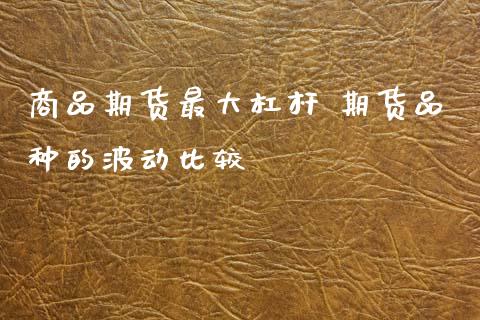 商品期货最大杠杆 期货品
种的波动比较